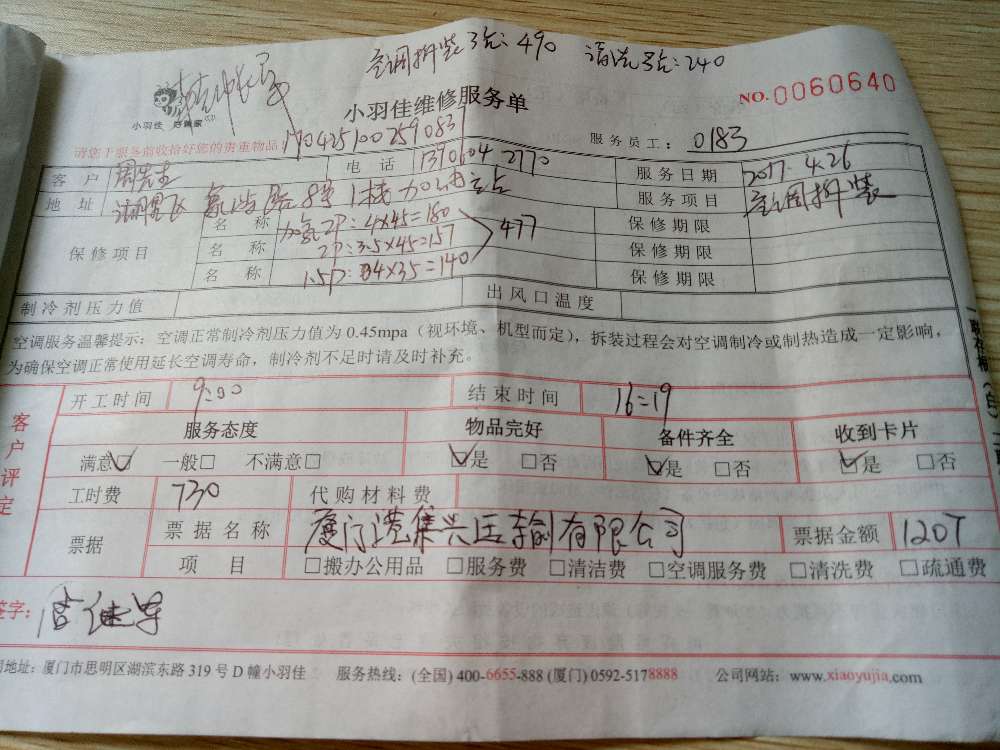 空调拆装3台:490 清洗3台:240
小羽佳 好管家
小羽佳维修服务单
NO.0060640
请您于服务前收拾好您的贵重物品!
服务员工: 0183
客户 周先生 电话 服务日期 2017.4.26
地址 服务项目 空调拆装
保修项目 名称 加氟2P:4x45=180 保修期限
名称 2P:3.5x45=157 477 保修期限
名称 1.5P:4x35=140 保修期限
制冷剂压力值 出风口温度
空调服务温馨提示:空调正常制冷剂压力值为0.45mpa(视环境、机型而定),拆装过程会对空调制冷或制热造成一定影响,
为确保空调正常使用延长空调寿命,制冷剂不足时请及时补充。
客户评定
开工时间 9:00 结束时间 16:19
服务态度 物品完好 备件齐全 收到卡片
满意☑ 一般□ 不满意□ ☑是 □否 ☑是 □否 ☑是 □否
工时费 730 代购材料费
票据 票据名称 厦门港集兴运输有限公司 票据金额 1207
项目 □搬办公用品 □服务费 □清洁费 □空调服务费 □清洗费 □疏通费
签字:
司地址:厦门市思明区湖滨东路319号D幢小羽佳 服务热线:(全国)400-6655-888 (厦门)0592-5178888 公司网站:www.xiaoyujia.com